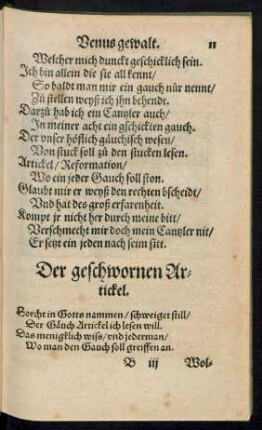 Venus gewalt. 11
Welcher mich dunckt geschicklich sein.
Ich bin allein die sie all kennt/
So baldt man mir ein gauch nür nennt/
Zů stellen weyß ich jhn behendt.
Darzů hab ich ein Cantzler auch/
In meiner acht ein gschickten gauch.
Der vnser höflich gäuchisch wesen/
Von stuck soll zů den stucken lesen.
Artickel/ Reformation/
Wo ein jeder Gauch soll ston.
Glaubt mir er weyß den rechten bscheidt/
Vnd hat des groß erfarenheit.
Kompt jr nicht her durch meine bitt/
Verschmecht mir doch mein Cantzler nit/
Er setzt ein jeden nach seim sitt.
Der geschwornen Ar-
tickel.
Horcht in Gotts nammen/ schweiget still/
Der Gäuch Artickel ich lesen will.
Das menigklich wiss/ vnd jederman/
Wo man den Gauch soll greiffen an.
B iij Wol-